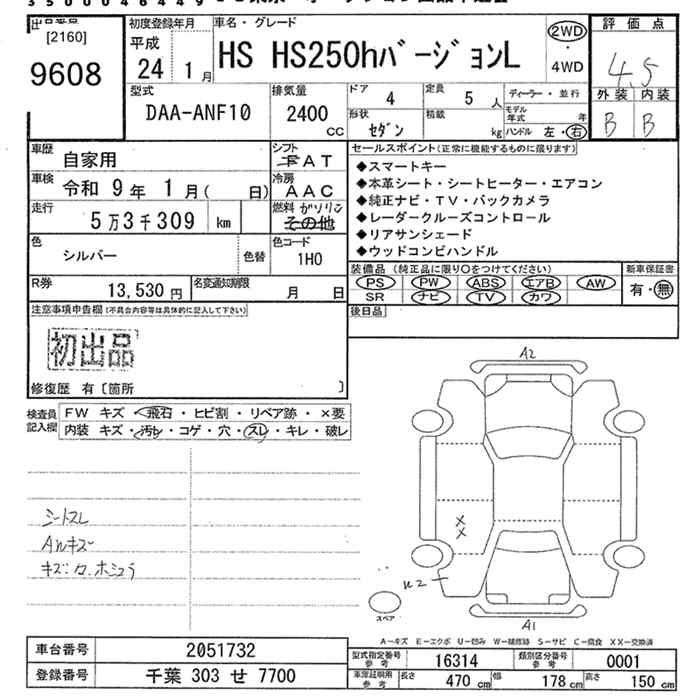 出品番号
[2160]
9608
初度登録年月
平成
24 1月
車名・グレード
HS HS250hバージョンL
2WD
・
4WD
評価点
4.5
外装 内装
B B
型式
DAA-ANF10
排気量
2400
CC
ドア
4
定員
5 人
ディーラー・並行
モデル年式 年
形状
セダン
積載
kg
ハンドル 左・右
車歴
自家用
シフト
FAT
車検
令和 9年 1月( 日)
冷房
AAC
走行
5万3千309 km
燃料 ガソリン
その他
色
シルバー
色替
色コード
1H0
R券
13,530円
名変通知期限
月 日
セールスポイント(正常に機能するものに限ります)
◆スマートキー
◆本革シート・シートヒーター・エアコン
◆純正ナビ・TV・バックカメラ
◆レーダークルーズコントロール
◆リアサンシェード
◆ウッドコンビハンドル
装備品 (純正品に限り○をつけてください)
PS PW ABS エアB AW
SR ナビ TV カワ
新車保証書
有・無
後日品
注意事項申告欄(不具合内容等は具体的に記入して下さい)
初出品
修復歴 有〔箇所 〕
検査員
記入欄
FW キズ ・飛石・ヒビ割・リペア跡・×要
内装 キズ・汚れ・コゲ・穴・スレ・キレ・破レ
シートスレ
AWキズ
A2
×
×
U2
スペア
A1
A−キズ E−エクボ U−凹み W−補修跡 S−サビ C−腐食 XX−交換済
車台番号 2051732
登録番号 千葉 303 せ 7700
型式指定番号
参考
16314
類別区分番号
参考
0001
車庫証明用
参考
長さ 470 cm 幅 178 cm 高さ 150 cm